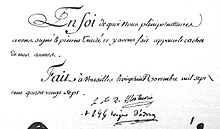 En foi de quoi Nous plenipotentiaires
avons signé le présent Traité et y avons fait apposer le cachet
de nos armes.
Fait à Versailles le vingt huit Novembre mil sept
cent quatre vingt sept.
de Montmorin
eveque d'adran